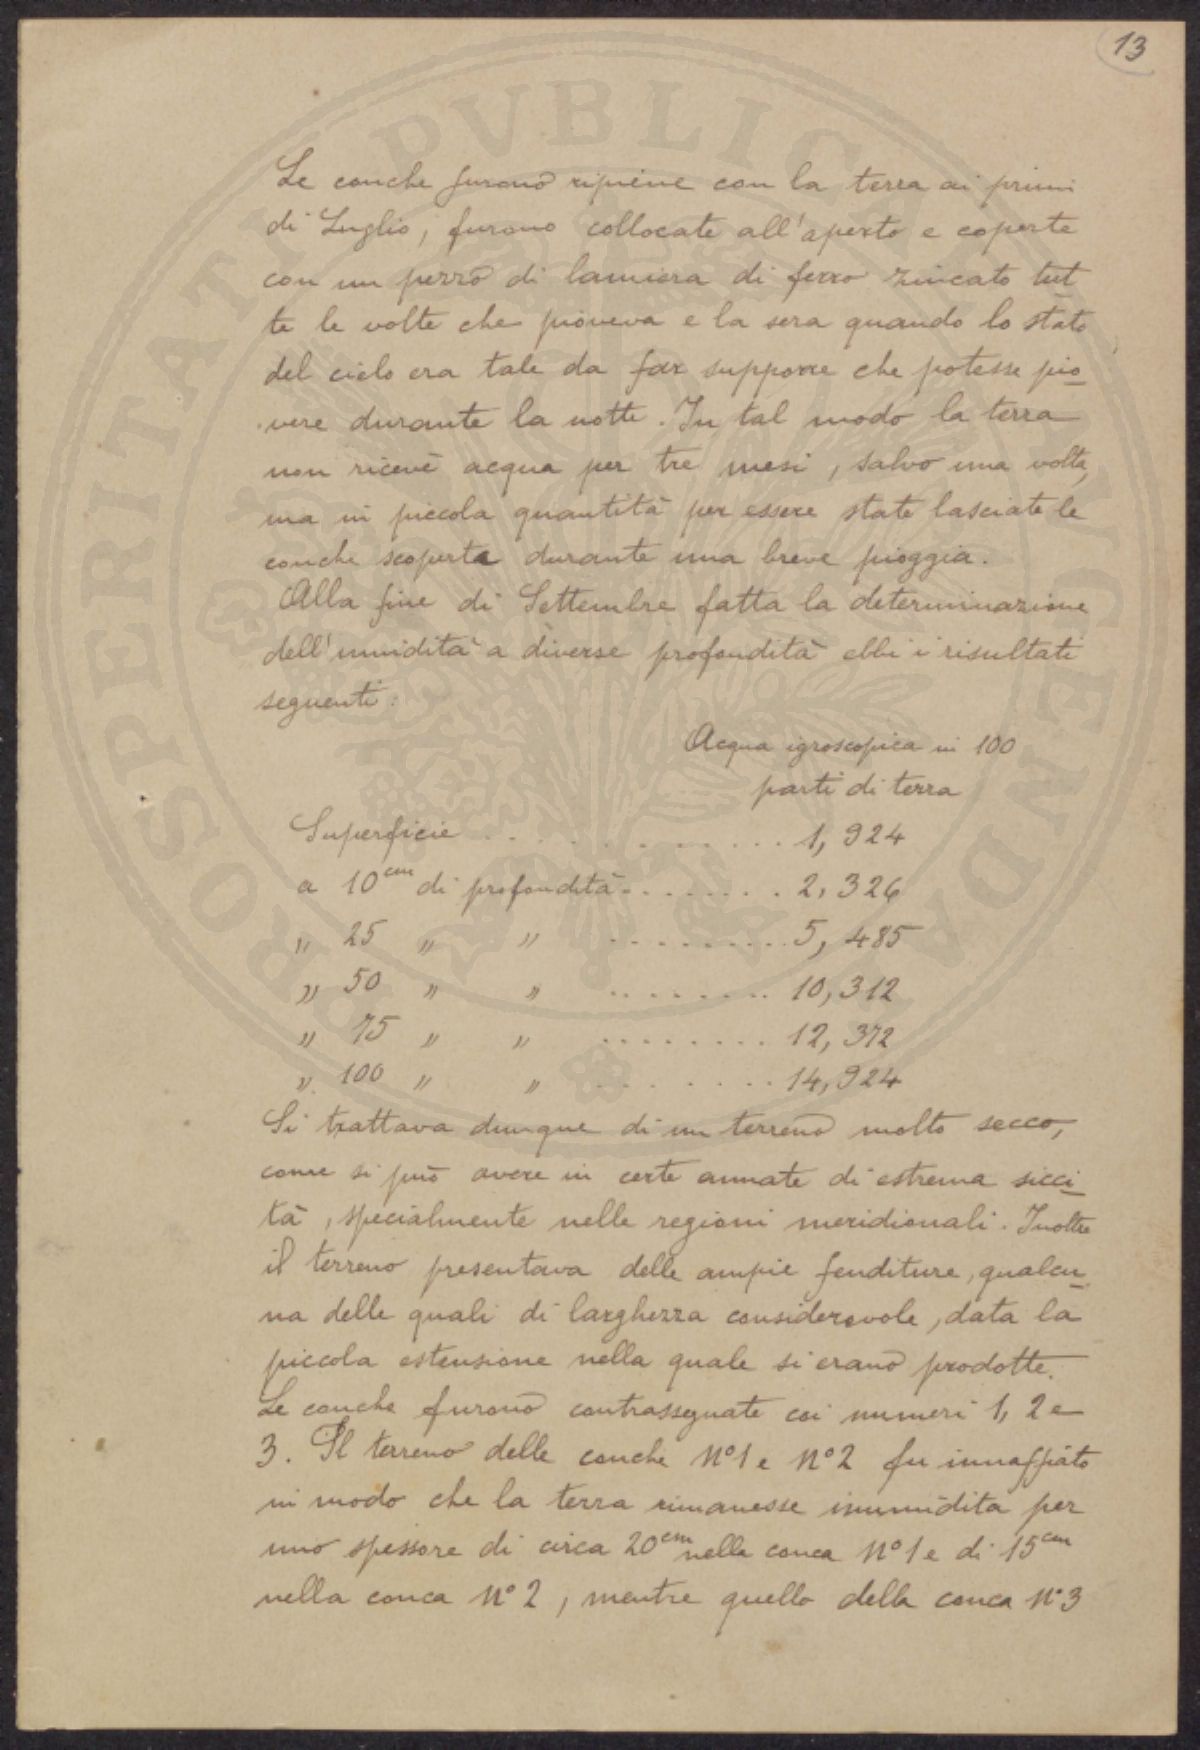 13
Le conche furono ripiene con la terra ai primi
di Luglio, furono collocate all'aperto e coperte
con un pezzo di lamiera di ferro zincato tut
te le volte che pioveva e la sera quando lo stato
del cielo era tale da far supporre che potesse pio-
vere durante la notte. In tal modo la terra
non ricevè acqua per tre mesi, salvo una volta,
ma in piccola quantità per essere state lasciate le
conche scoperte durante una breve pioggia.
Alla fine di Settembre fatta la determinazione
dell'umidità a diverse profondità ebbi i risultati
seguenti:
Acqua igroscopica in 100
parti di terra
Superficie . . . . . . . . . . . 1,924
a 10 cm di profondità . . . . . . . . 2,326
" 25 " " . . . . . . . . . 5,485
" 50 " " . . . . . . . . 10,312
" 75 " " . . . . . . . . 12,372
" 100 " " . . . . . . . . 14,924
Si trattava dunque di un terreno molto secco,
come si può avere in certe annate di estrema sicci-
tà, specialmente nelle regioni meridionali. Inoltre
il terreno presentava delle ampie fenditure, qualcu-
na delle quali di larghezza considerevole, data la
piccola estensione nella quale si erano prodotte.
Le conche furono contrassegnate coi numeri 1, 2 e
3. Il terreno delle conche N° 1 e N° 2 fu innaffiato
in modo che la terra rimanesse inumidita per
uno spessore di circa 20 cm nella conca N° 1 e di 15 cm
nella conca N° 2, mentre quello della conca N° 3
PROSPERITATI PVBLICAE AVGENDAE